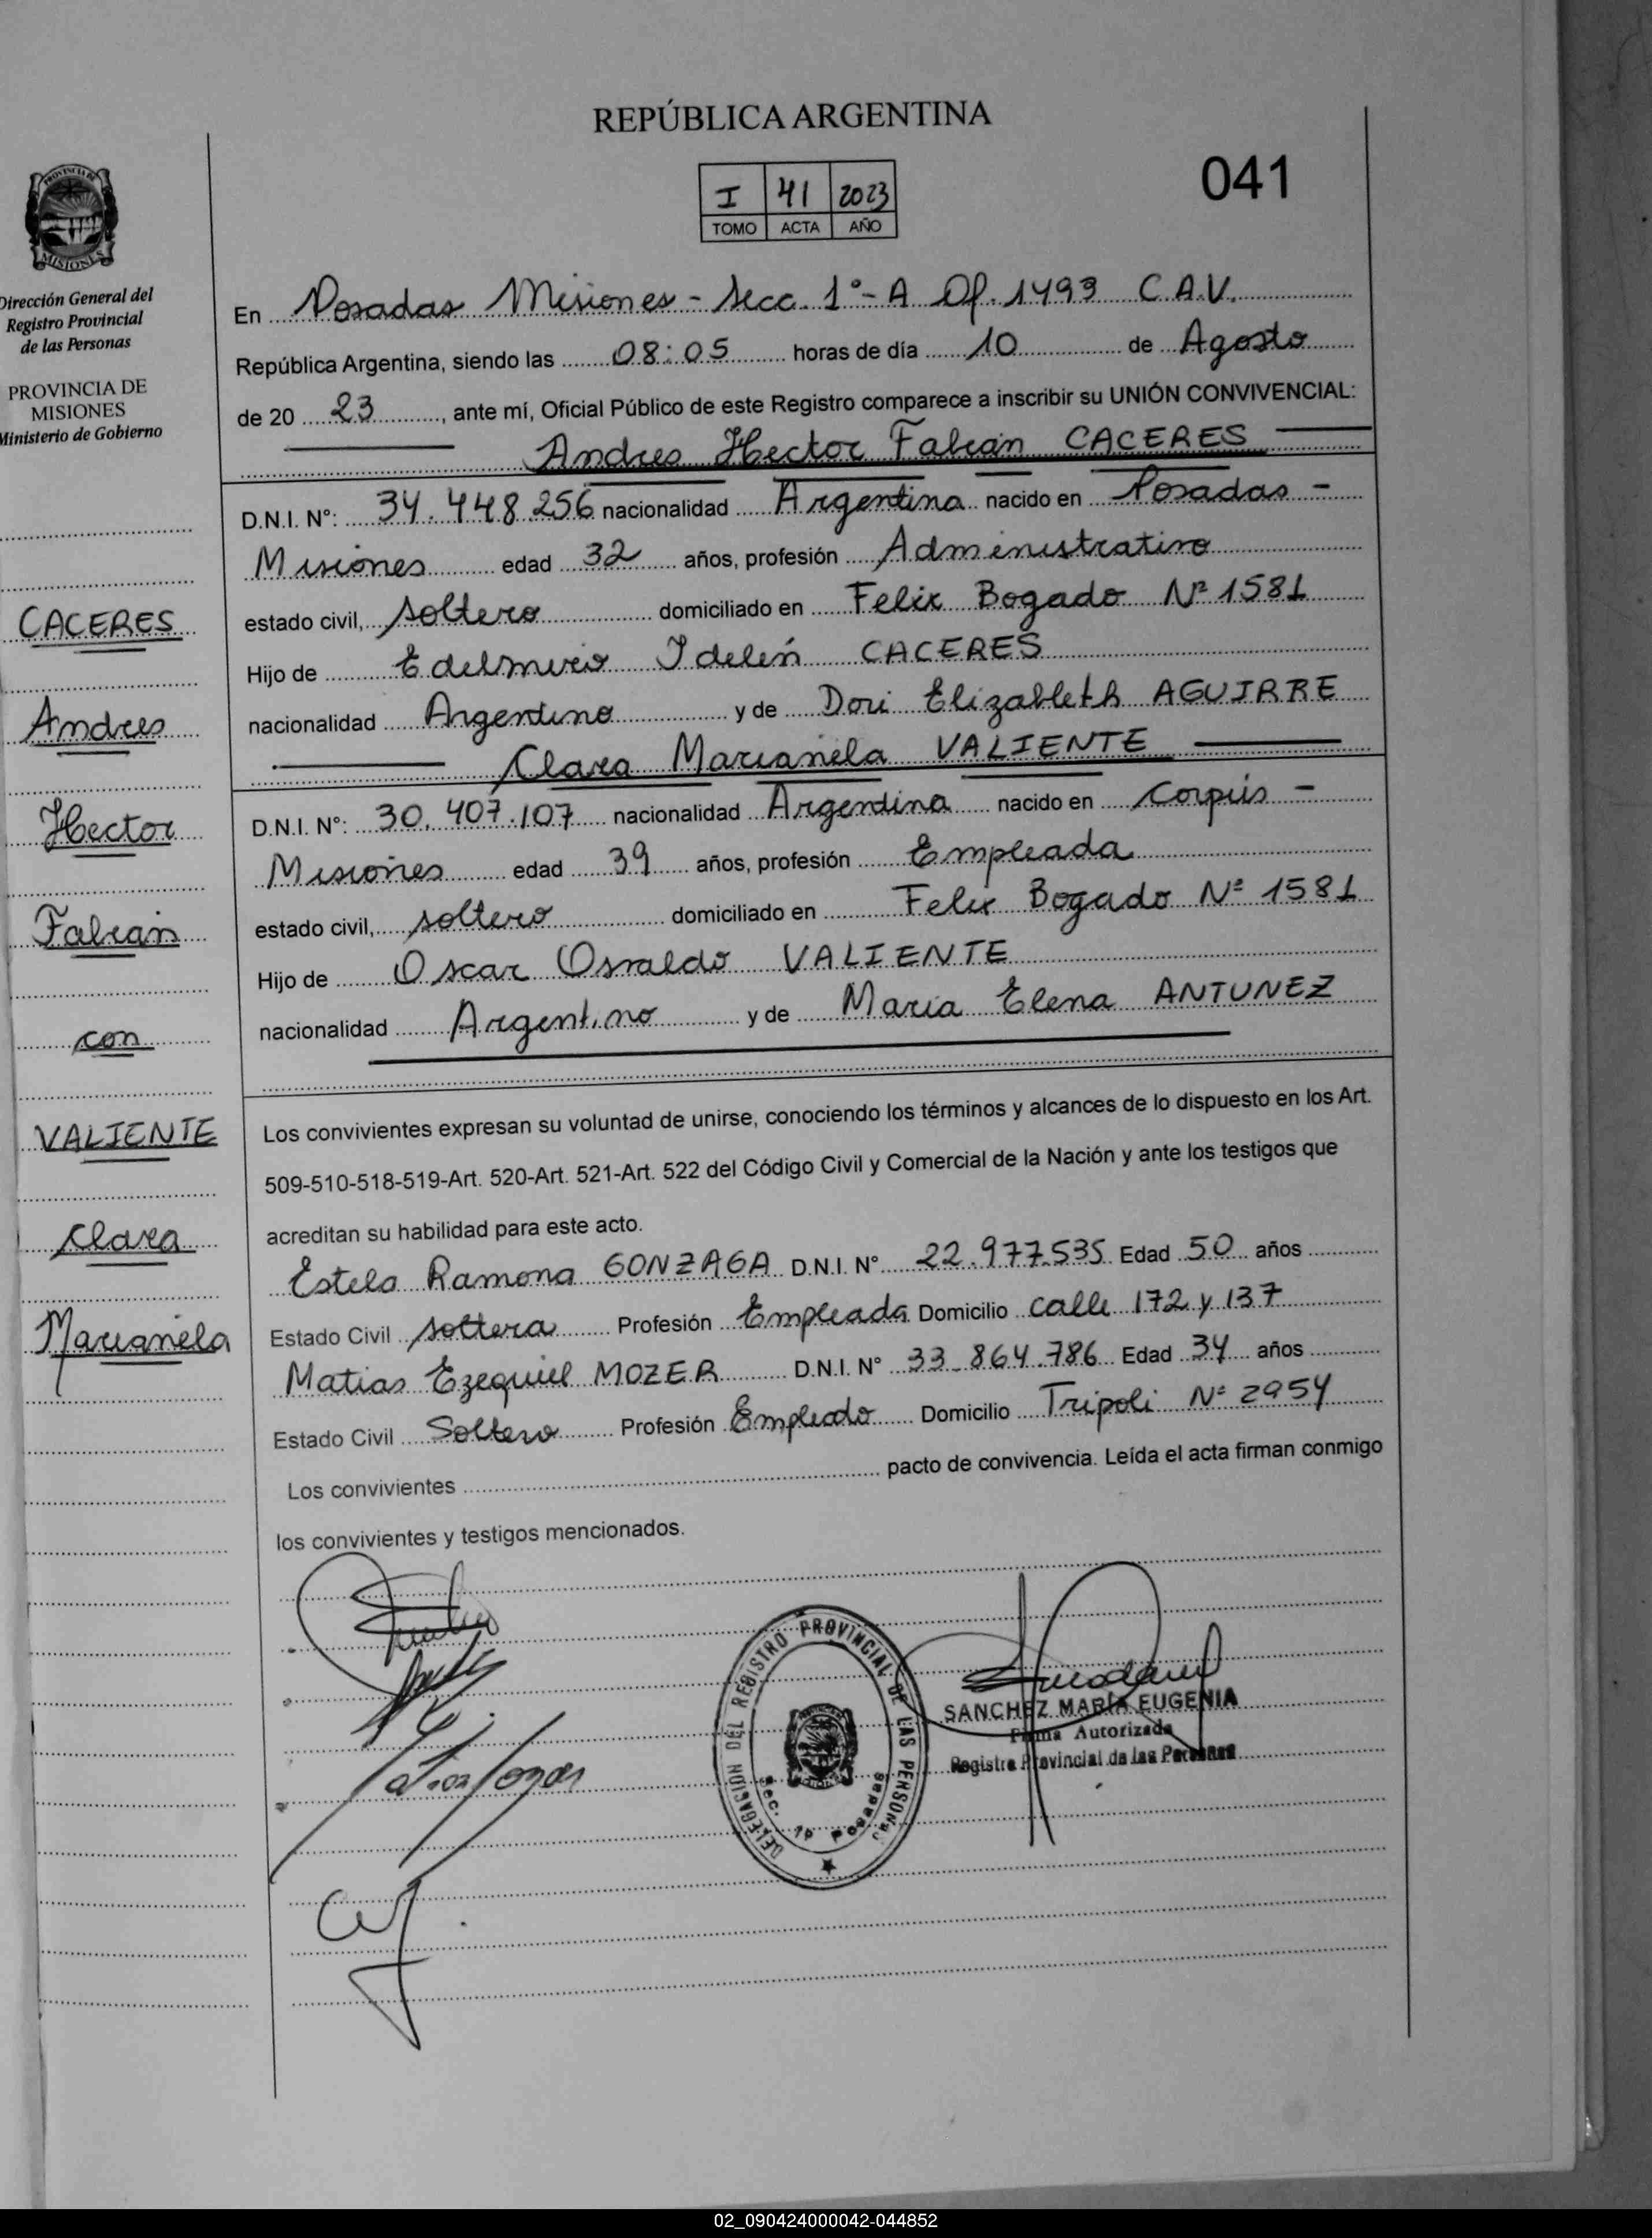 REPÚBLICA ARGENTINA
041
I 41 2023
TOMO ACTA AÑO
PROVINCIA DE
MISIONES
Dirección General del
Registro Provincial
de las Personas
PROVINCIA DE
MISIONES
Ministerio de Gobierno
CACERES
Andres
Hector
Fabian
con
VALIENTE
Clara
Marianela
En Posadas Misiones - Secc. 1°- A Of. 1493 C.A.V.
República Argentina, siendo las 08:05 horas de día 10 de Agosto
de 20 23, ante mí, Oficial Público de este Registro comparece a inscribir su UNIÓN CONVIVENCIAL:
Andres Hector Fabian CACERES
D.N.I. N°: 34.448.256 nacionalidad Argentina nacido en Posadas -
Misiones edad 32 años, profesión Administrativo
estado civil, soltero domiciliado en Felix Bogado N° 1581
Hijo de Edelmiro Idelin CACERES
nacionalidad Argentino y de Dori Elizableth AGUIRRE
Clara Marianela VALIENTE
D.N.I. N°: 30.407.107 nacionalidad Argentina nacido en Corpus -
Misiones edad 39 años, profesión Empleada
estado civil, soltero domiciliado en Felix Bogado N° 1581
Hijo de Oscar Osvaldo VALIENTE
nacionalidad Argentino y de Maria Elena ANTUNEZ
Los convivientes expresan su voluntad de unirse, conociendo los términos y alcances de lo dispuesto en los Art.
509-510-518-519-Art. 520-Art. 521-Art. 522 del Código Civil y Comercial de la Nación y ante los testigos que
acreditan su habilidad para este acto.
Estela Ramona GONZAGA D.N.I. N° 22.977.535 Edad 50 años
Estado Civil soltera Profesión Empleada Domicilio calle 172 y 137
Matias Ezequiel MOZER D.N.I. N° 33.864.786 Edad 34 años
Estado Civil Soltero Profesión Empleado Domicilio Tripoli N° 2954
Los convivientes pacto de convivencia. Leída el acta firman conmigo
los convivientes y testigos mencionados.
DELEGACION DEL REGISTRO PROVINCIAL DE LAS PERSONAS
Sec. 1º Posadas
SANCHEZ MARÍA EUGENIA
Firma Autorizada
Registro Provincial de las Personas
02_090424000042-044852